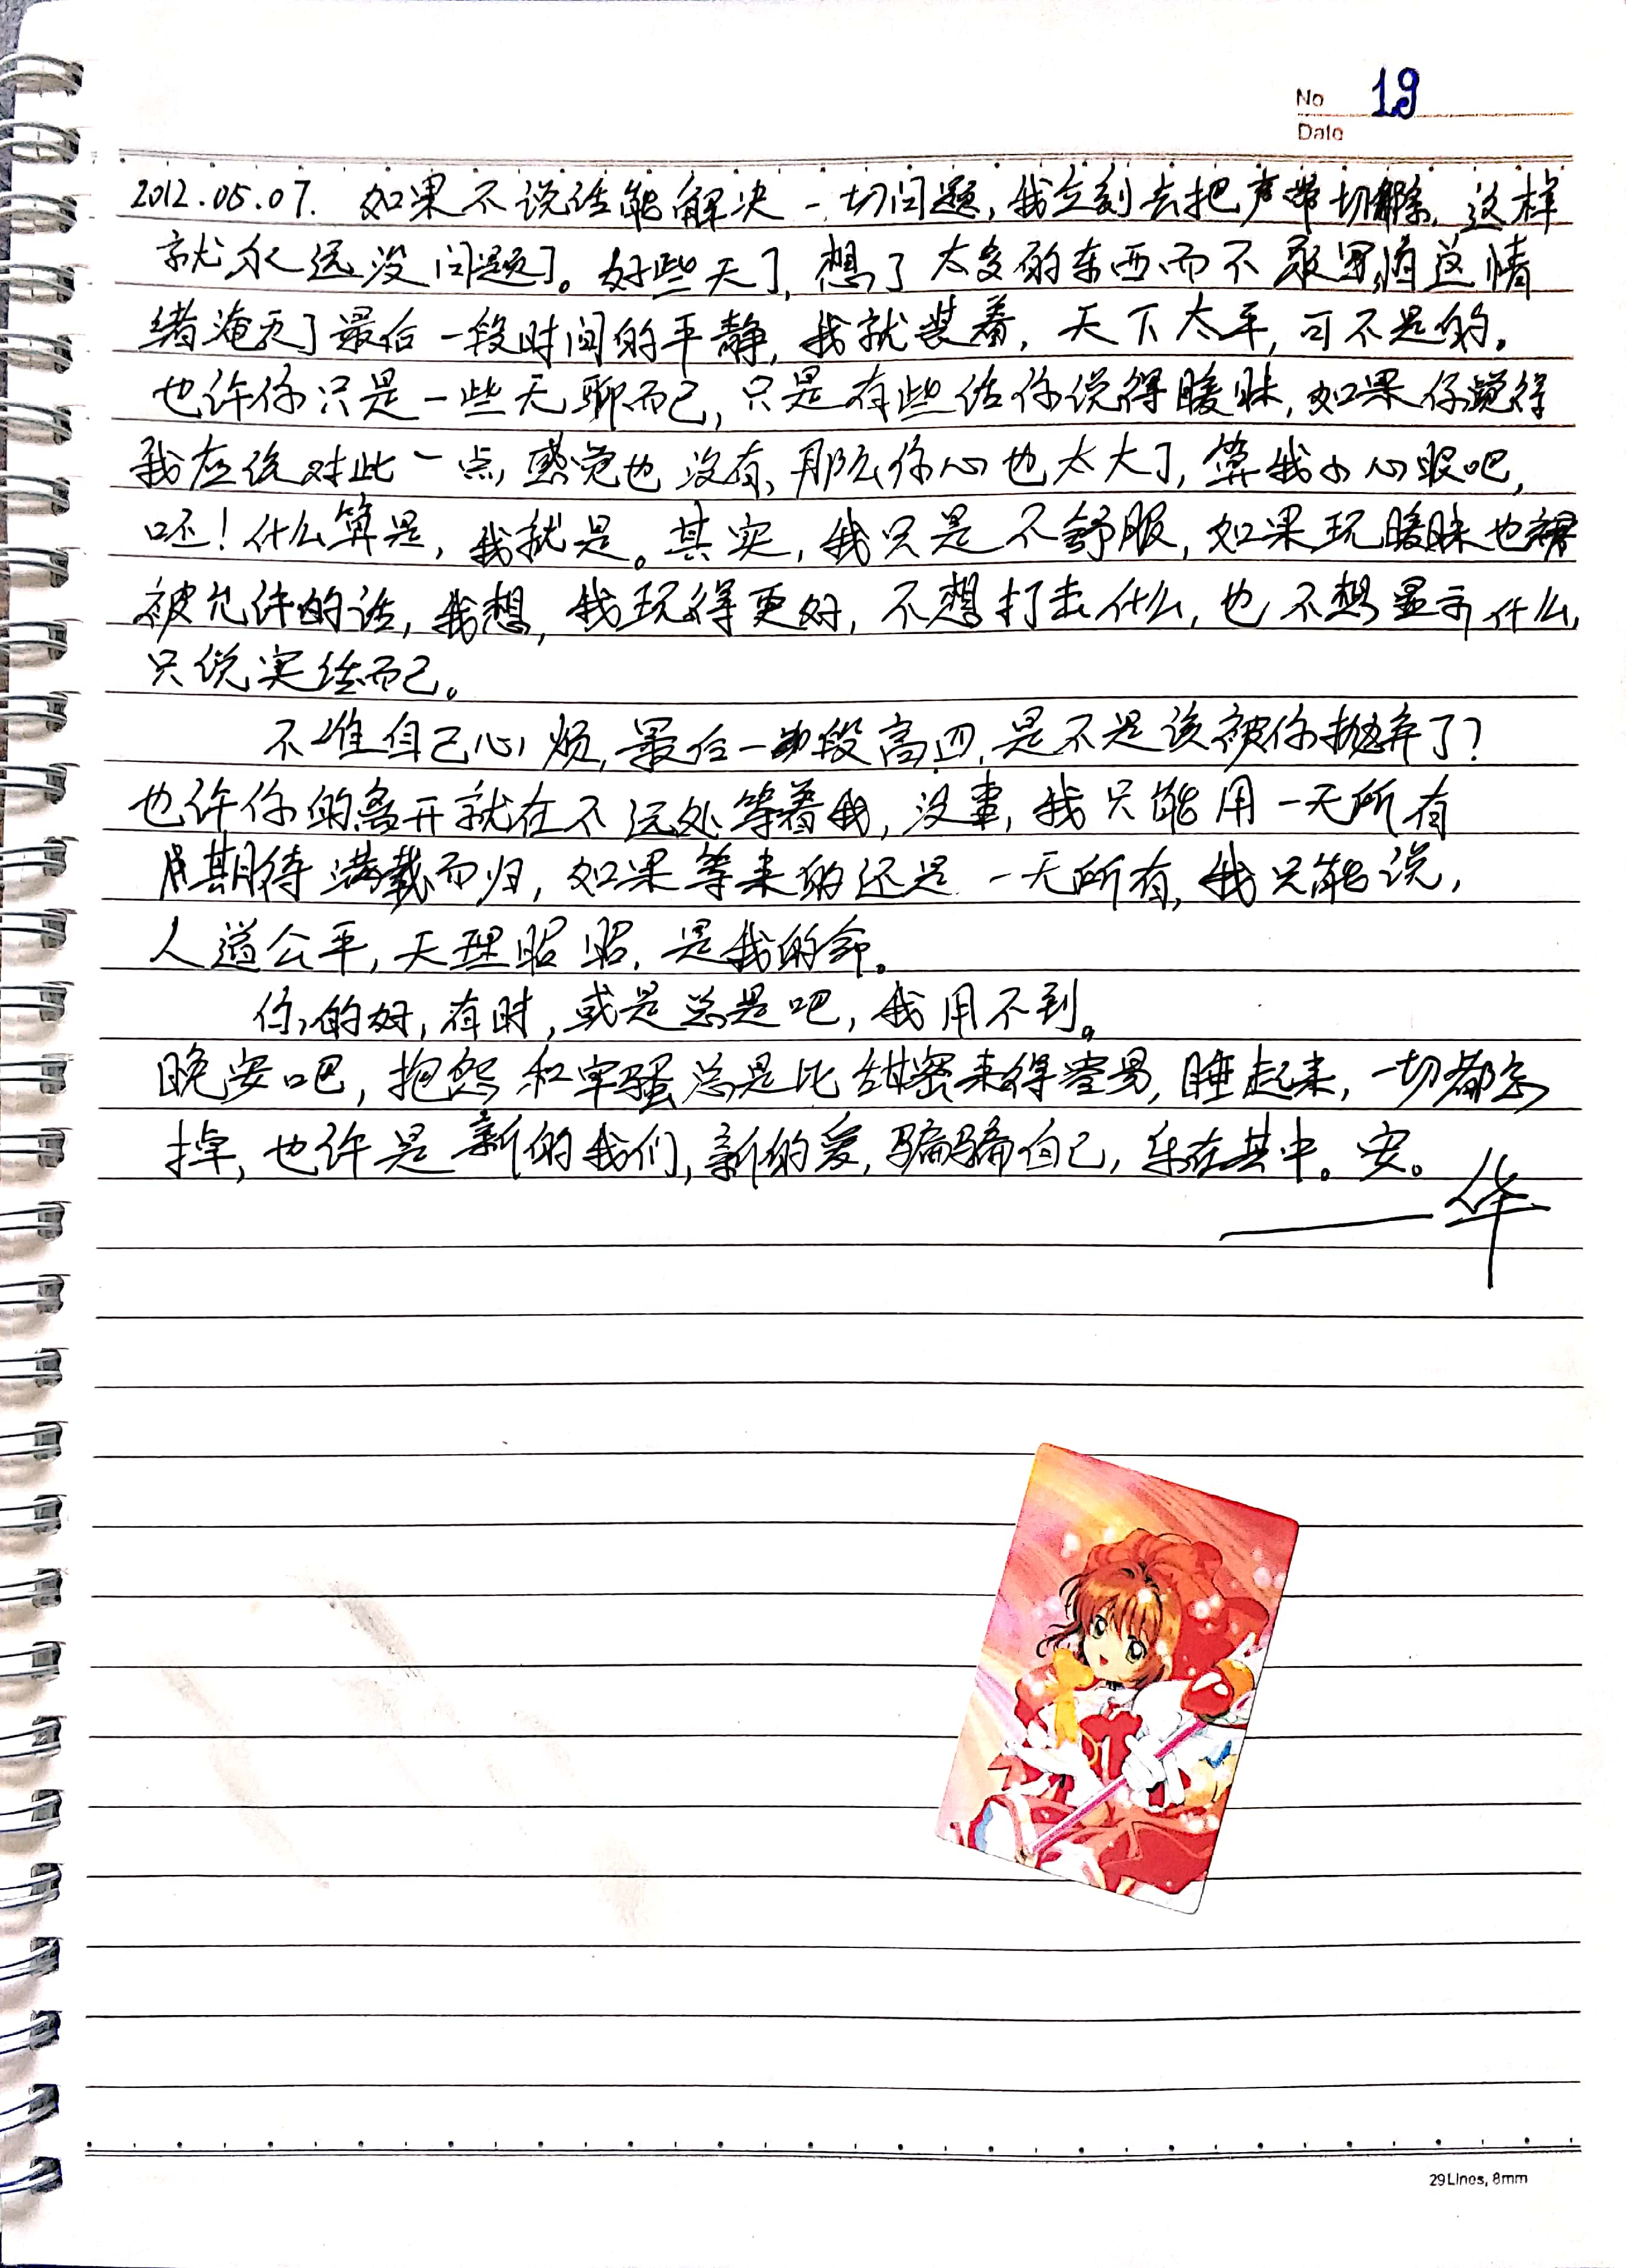 No 19
Date
2012.05.07. 如果不说话能解决一切问题,我立刻去把声带切除,这样
就永远没问题了。好些天了,想了太多的东西而不敢写,怕这情
绪淹死了最后一段时间的平静,我就装着,天下太平,可不是的。
也许你只是一些无聊而已,只是有些话你说得暧昧,如果你觉得
我应该对此一点感觉也没有,那么你心也太大了,算我小心眼吧,
呸!什么算是,我就是。其实,我只是不舒服,如果玩暧昧也
被允许的话,我想,我玩得更好,不想打击什么,也不想显示什么,
只说实话而已。
不准自己心烦,最后一段高四,是不是该被你抛弃了?
也许你的离开就在不远处等着我,没事,我只能用一无所有
期待满载而归,如果等来的还是一无所有,我只能说,
人道公平,天理昭昭,是我的命。
你的好,有时,或是总是吧,我用不到。
晚安吧,抱怨和牢骚总是比甜蜜来得容易,睡起来,一切都忘
掉,也许是新的我们,新的爱,骗骗自己,乐在其中。安。
——华
29Lines, 8mm